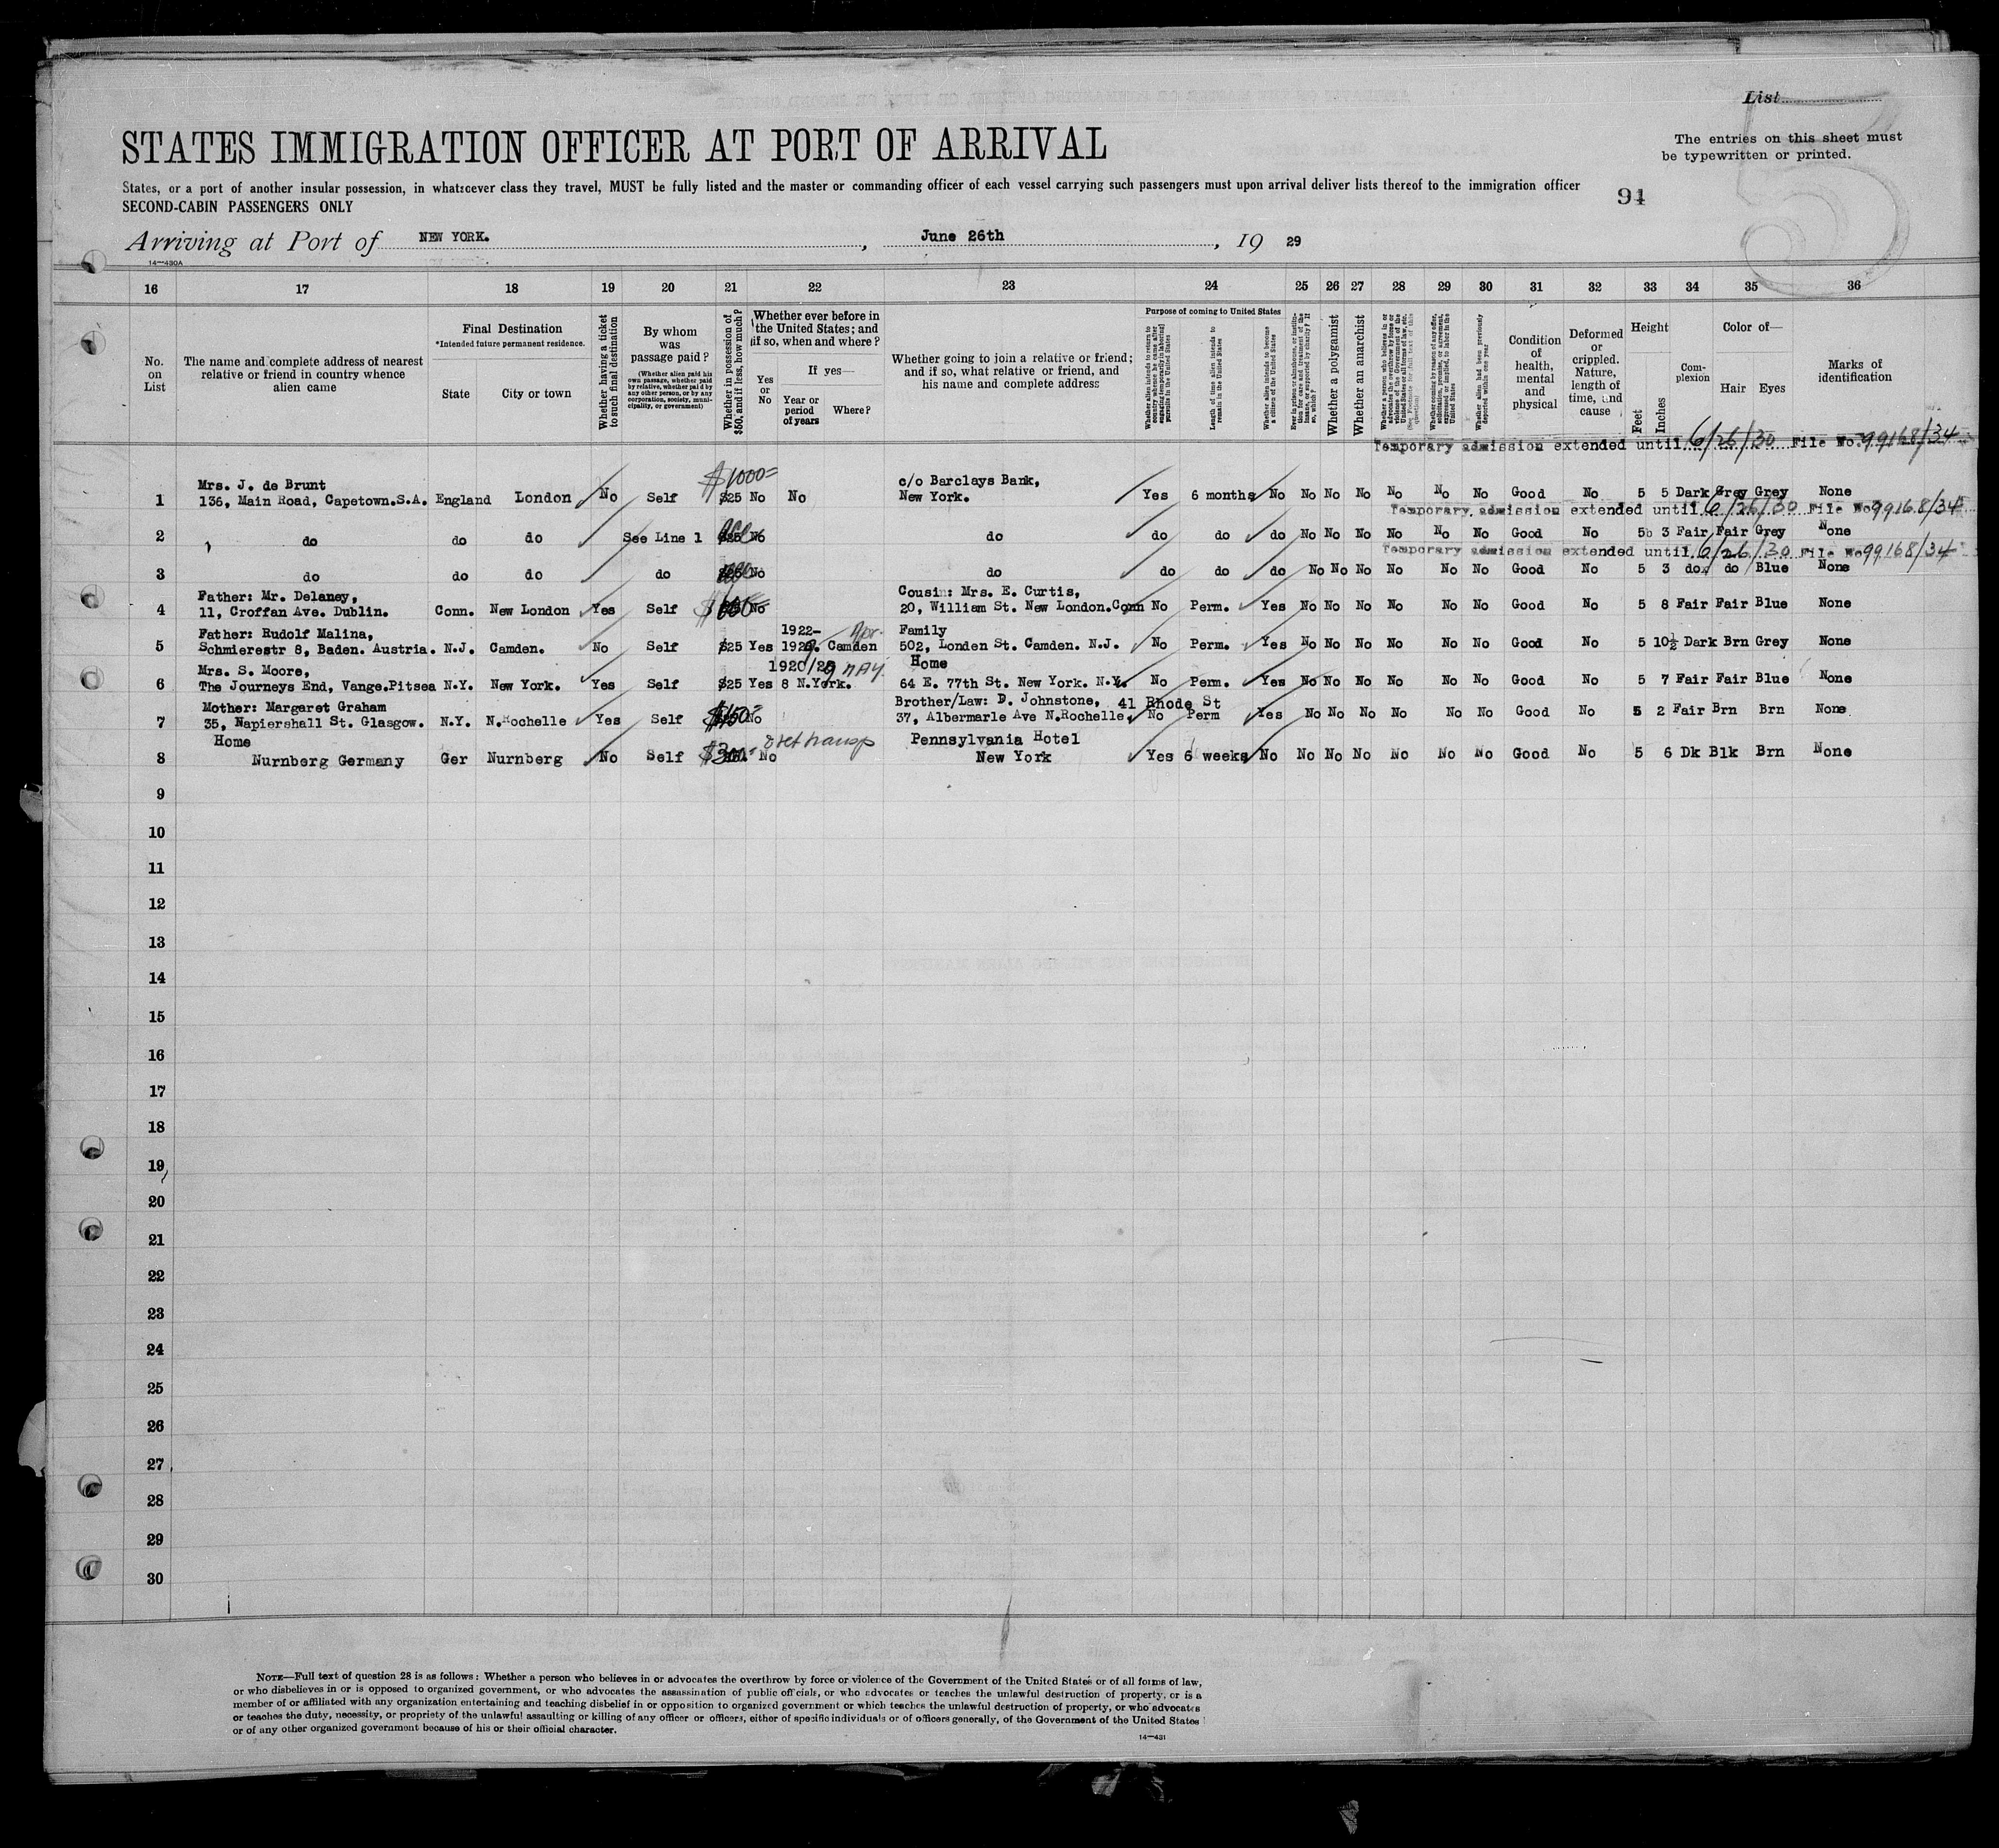 List
STATES IMMIGRATION OFFICER AT PORT OF ARRIVAL
The entries on this sheet must
be typewritten or printed.
States, or a port of another insular possession, in whatsoever class they travel, MUST be fully listed and the master or commanding officer of each vessel carrying such passengers must upon arrival deliver lists thereof to the immigration officer
SECOND-CABIN PASSENGERS ONLY
91
5
Arriving at Port of NEW YORK. , June 26th , 19 29
14—430A
16 17 18 19 20 21 22 23 24 25 26 27 28 29 30 31 32 33 34 35 36
No. on List
The name and complete address of nearest relative or friend in country whence alien came
Final Destination
*Intended future permanent residence.
State City or town
Whether having a ticket to such final destination
By whom was passage paid?
(Whether alien paid his own passage, whether paid by relative, whether paid by any other person, or by any corporation, society, municipality, or government)
Whether in possession of $50, and if less, how much?
Whether ever before in the United States; and if so, when and where?
Yes or No
If yes—
Year or period of years Where?
Whether going to join a relative or friend; and if so, what relative or friend, and his name and complete address
Purpose of coming to United States
Length of time alien intends to remain in the United States
Whether alien intends to become a citizen of the United States
Whether a polygamist
Whether an anarchist
Whether alien had been previously deported within one year
Condition of health, mental and physical
Deformed or crippled. Nature, length of time, and cause
Height
Feet Inches
Complexion
Color of—
Hair Eyes
Marks of identification
Temporary admission extended until 6/26/30 File No. 99168/34
$1000=
Mrs. J. de Brunt c/o Barclays Bank,
1 136, Main Road, Capetown.S.A. England London No Self $25 No No New York. Yes 6 months No No No No No No No Good No 5 5 Dark Grey Grey None
Temporary admission extended until 6/26/30 File No 99168/34
2 do do do See Line 1 $25 No do do do do No No No No No No Good No 5 3 Fair Fair Grey None
Temporary admission extended until 6/26/30 File No 99168/34
3 do do do do No do do do do No No No No No No Good No 5 3 do do Blue None
Father: Mr. Delaney, Cousin: Mrs. E. Curtis,
4 11, Croffan Ave. Dublin. Conn. New London Yes Self No 20, William St. New London.Conn No Perm. Yes No No No No No No Good No 5 8 Fair Fair Blue None
Father: Rudolf Malina, 1922- Apr. Family
5 Schmierestr 8, Baden. Austria. N.J. Camden. No Self $25 Yes 1929. Camden 502, Londen St. Camden. N.J. No Perm. Yes No No No No No No Good No 5 10½ Dark Brn Grey None
Mrs. S. Moore, 1920/29 MAY Home
6 The Journeys End, Vange.Pitsea N.Y. New York. Yes Self $25 Yes 8 N.York. 64 E. 77th St. New York. N.Y. No Perm. Yes No No No No No No Good No 5 7 Fair Fair Blue None
Mother: Margaret Graham Brother/Law: D. Johnstone, 41 Rhode St
7 35, Napiershall St. Glasgow. N.Y. N.Rochelle Yes Self $150= No 37, Albermarle Ave N.Rochelle. No Perm Yes No No No No No No Good No 5 2 Fair Brn Brn None
Home Pennsylvania Hotel
8 Nurnberg Germany Ger Nurnberg No Self $300= No New York Yes 6 weeks No No No No No No No Good No 5 6 Dk Blk Brn None
9
10
11
12
13
14
15
16
17
18
19
20
21
22
23
24
25
26
27
28
29
30
NOTE—Full text of question 28 is as follows: Whether a person who believes in or advocates the overthrow by force or violence of the Government of the United States or of all forms of law,
or who disbelieves in or is opposed to organized government, or who advocates the assassination of public officials, or who advocates or teaches the unlawful destruction of property, or is a
member of or affiliated with any organization entertaining and teaching disbelief in or opposition to organized government or which teaches the unlawful destruction of property, or who advocates
or teaches the duty, necessity, or propriety of the unlawful assaulting or killing of any officer or officers, either of specific individuals or of officers generally, of the Government of the United States
or of any other organized government because of his or their official character.
14—431